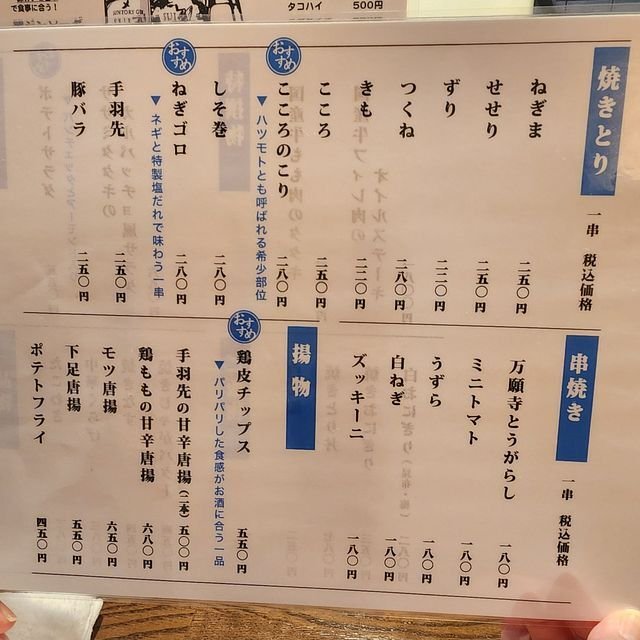 タコハイ 500円
で食事に合う
焼きとり
一串 税込価格
ねぎま 二五〇円
せせり 二五〇円
ずり 二二〇円
つくね 二八〇円
きも 二二〇円
こころ 二五〇円
おすすめ
こころのこり 二八〇円
▼ハツモトとも呼ばれる希少部位
しそ巻 二八〇円
おすすめ
ねぎゴロ 二八〇円
▼ネギと特製塩だれで味わう一串
手羽先 二五〇円
豚バラ 二五〇円
串焼き
一串 税込価格
万願寺とうがらし 一八〇円
ミニトマト 一八〇円
うずら 一八〇円
白ねぎ 一八〇円
ズッキーニ 一八〇円
揚物
おすすめ
鶏皮チップス 五五〇円
▼パリパリした食感がお酒に合う一品
手羽先の甘辛唐揚(二本) 五〇〇円
鶏ももの甘辛唐揚 六八〇円
モツ唐揚 六五〇円
下足唐揚 五五〇円
ポテトフライ 四五〇円